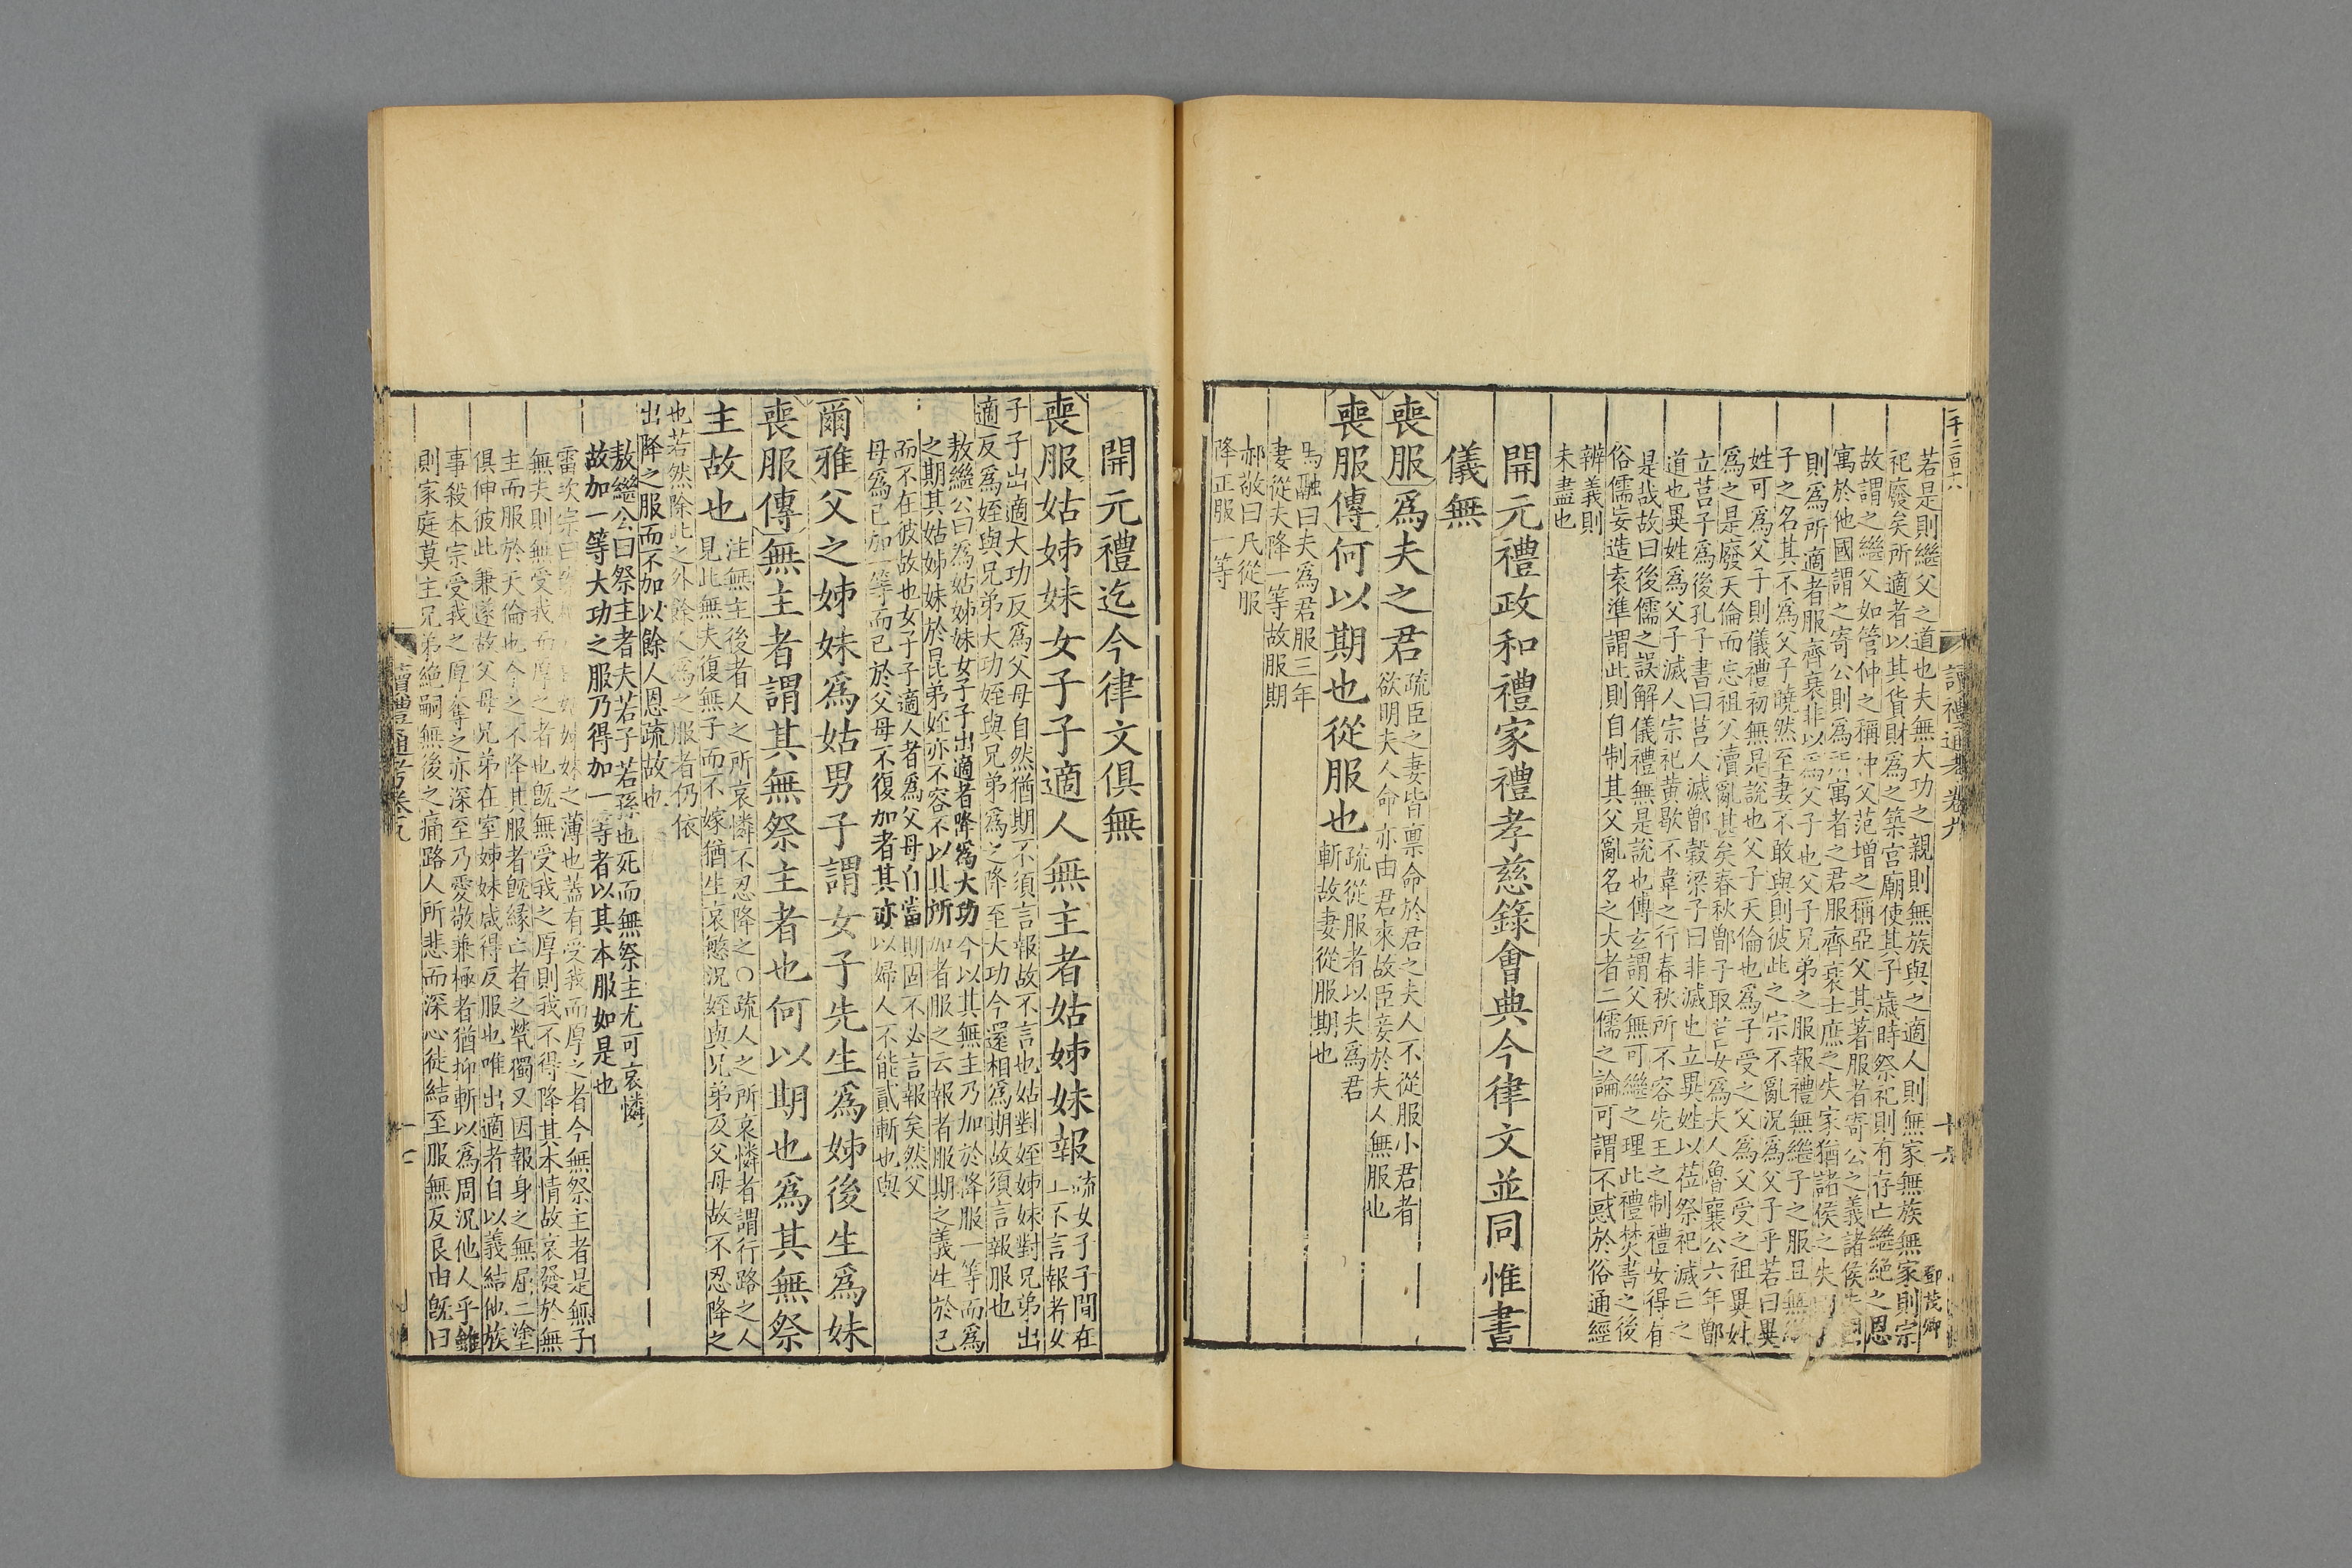 讀禮通考 卷九
十六
鄧茂卿
若是則繼父之道也夫無大功之親則無族與之適人則無家無族無家則宗
祀廢矣所適者以其貨財為之築宮廟使其子歲時祭祀則有存亡繼絕之恩
故謂之繼父如管仲之稱仲父范增之稱亞父其著服者寄公之義諸侯失國
寓於他國謂之寄公則為所寓者之君服齊衰士庶之失家猶諸侯之失
則為所適者服齊衰非以為父子也父子兄弟之服報禮無繼子之服且無
子之名其不為父子曉然至妻不敢與則彼此之宗不亂況為父子乎若曰異
姓可為父子則儀禮初無是說也父子天倫也為子受之父為父受之祖異姓
為之是廢天倫而忘祖父瀆亂甚矣春秋鄫子取莒女為夫人魯襄公六年鄫
立莒子為後孔子書曰莒人滅鄫穀梁子曰非滅也立異姓以莅祭祀滅亡之
道也異姓為父子滅人宗祀黃歇不韋之行春秋所不容先王之制禮安得有
是哉故曰後儒之誤解儀禮無是說也傅玄謂父無可繼之理此禮焚書之後
俗儒妄造袁準謂此則自制其父亂名之大者二儒之論可謂不惑於俗通經
辨義則
未盡也
開元禮政和禮家禮孝慈錄會典今律文並同惟書
儀無
喪服為夫之君疏臣之妻皆稟命於君之夫人不從服小君者
欲明夫人命亦由君來故臣妾於夫人無服也
喪服傳何以期也從服也疏從服者以夫為君
斬故妻從服期也
馬融曰夫為君服三年
妻從夫降一等故服期
郝敬曰凡從服
降正服一等
開元禮迄今律文俱無
喪服姑姊妹女子子適人無主者姑姊妹報疏女子子間在
上不言報者女
子子出適大功反為父母自然猶期不須言報故不言也姑對姪姊妹對兄弟出
適反為姪與兄弟大功姪與兄弟為之降至大功今還相為期故須言報服也
敖繼公曰為姑姊妹女子子出適者降為大功今以其無主乃加於降服一等而為
之期其姑姊妹於昆弟姪亦不容不以其所加者服之云報者服期之義生於己
而不在彼故也女子子適人者為父母自當期固不必言報矣然父
母為己加一等而己於父母不復加者其亦以婦人不能貳斬也與
爾雅父之姊妹為姑男子謂女子先生為姊後生為妹
喪服傳無主者謂其無祭主者也何以期也為其無祭
主故也注無主後者人之所哀憐不忍降之○疏人之所哀憐者謂行路之人
見此無夫復無子而不嫁猶生哀慜況姪與兄弟及父母故不忍降之
也若然除此之外餘人為之服者仍依
出降之服而不加以餘人恩疏故也
敖繼公曰祭主者夫若子若孫也死而無祭主尤可哀憐
故加一等大功之服乃得加一等者以其本服如是也
雷次宗曰姑姊妹之薄也蓋有受我而厚之者今無祭主者是無子
無夫則無受我而厚之者也既無受我之厚則我不得降其本情故哀發於無
主而服於天倫也今之不降其服者既緣亡者之煢獨又因報身之無屈二塗
俱伸彼此兼遂故父母兄弟在室姊妹咸得反服也唯出適者自以義結他族
事殺本宗受我之厚奪之亦深至乃愛敬兼極者猶抑斬以為周況他人乎雖
則家庭莫主兄弟絕嗣無後之痛路人所悲而深心徒結至服無反良由既曰
讀禮通考卷九
十七